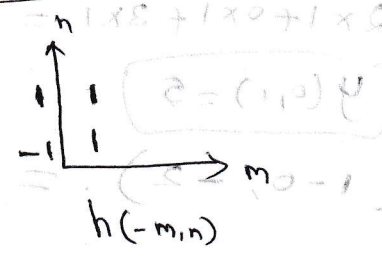 n
1 1
-1 1
m
h(-m,n)